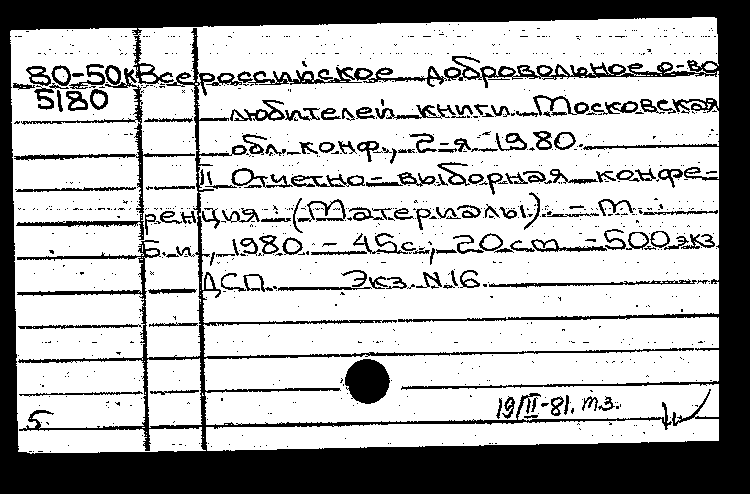 80-50к Всероссийское добровольное о-во
5180 любителей книги. Московская
обл. конф., 2-я 1980.
II Отчетно-выборная конфе-
ренция: (Материалы). - М.:
Б.и., 1980. - 45с.; 20см. - 500экз.
ДСП. Экз. N.16.
19/II-81. т.з.
5